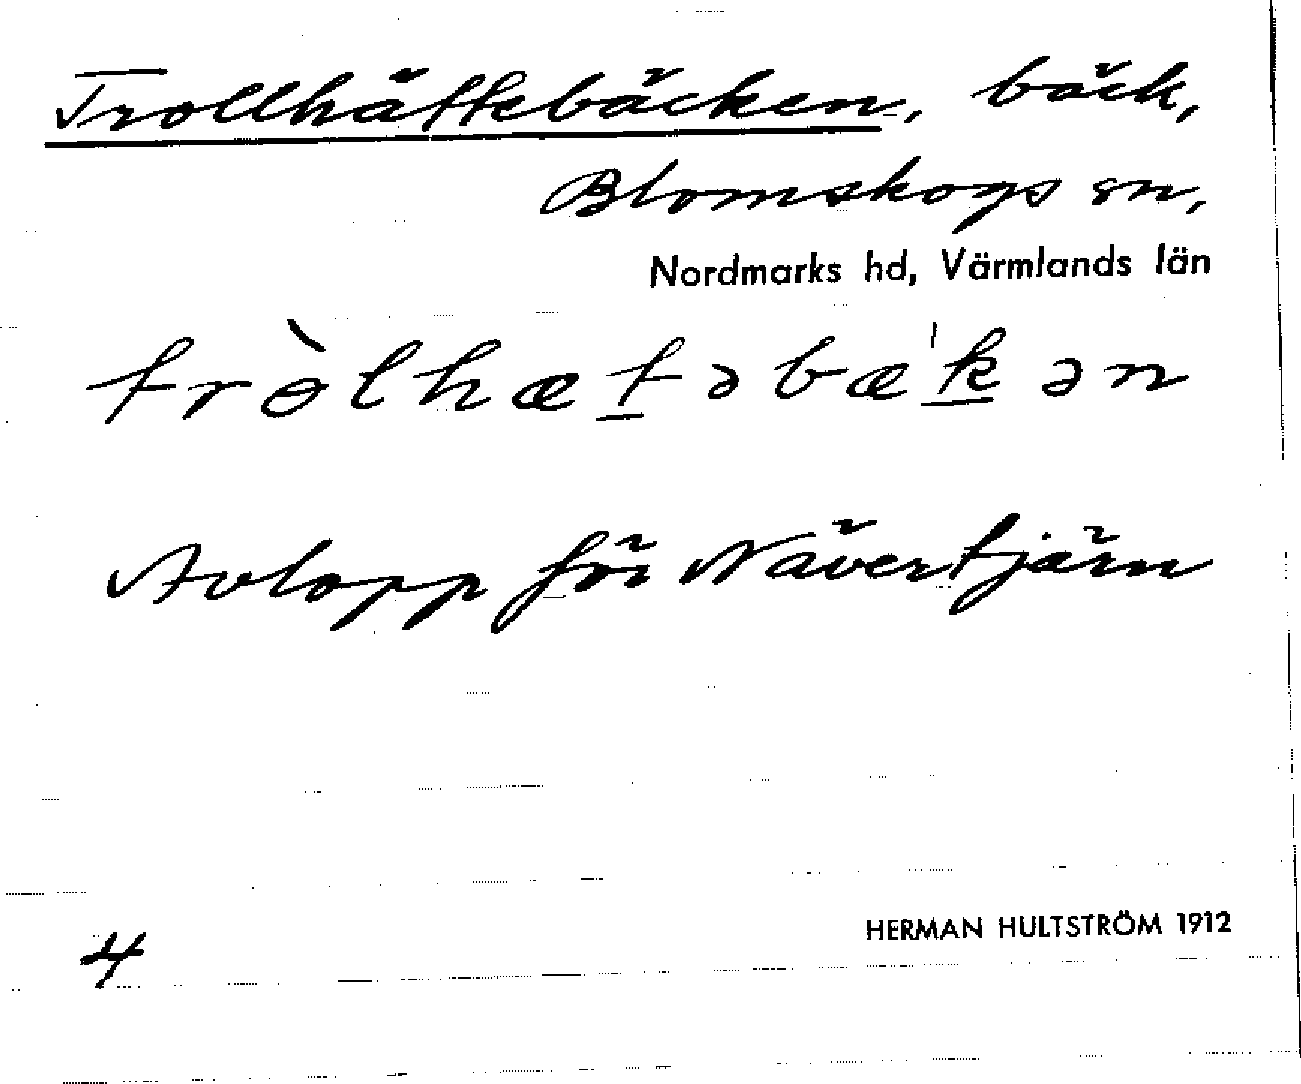 Trollhättebäcken, bäck,
Blomskogs sn,
Nordmarks hd, Värmlands län
trɵ̀lhæt̲əbæ'k̲ən
Avlopp för Nävertjärn
4
HERMAN HULTSTRÖM 1912